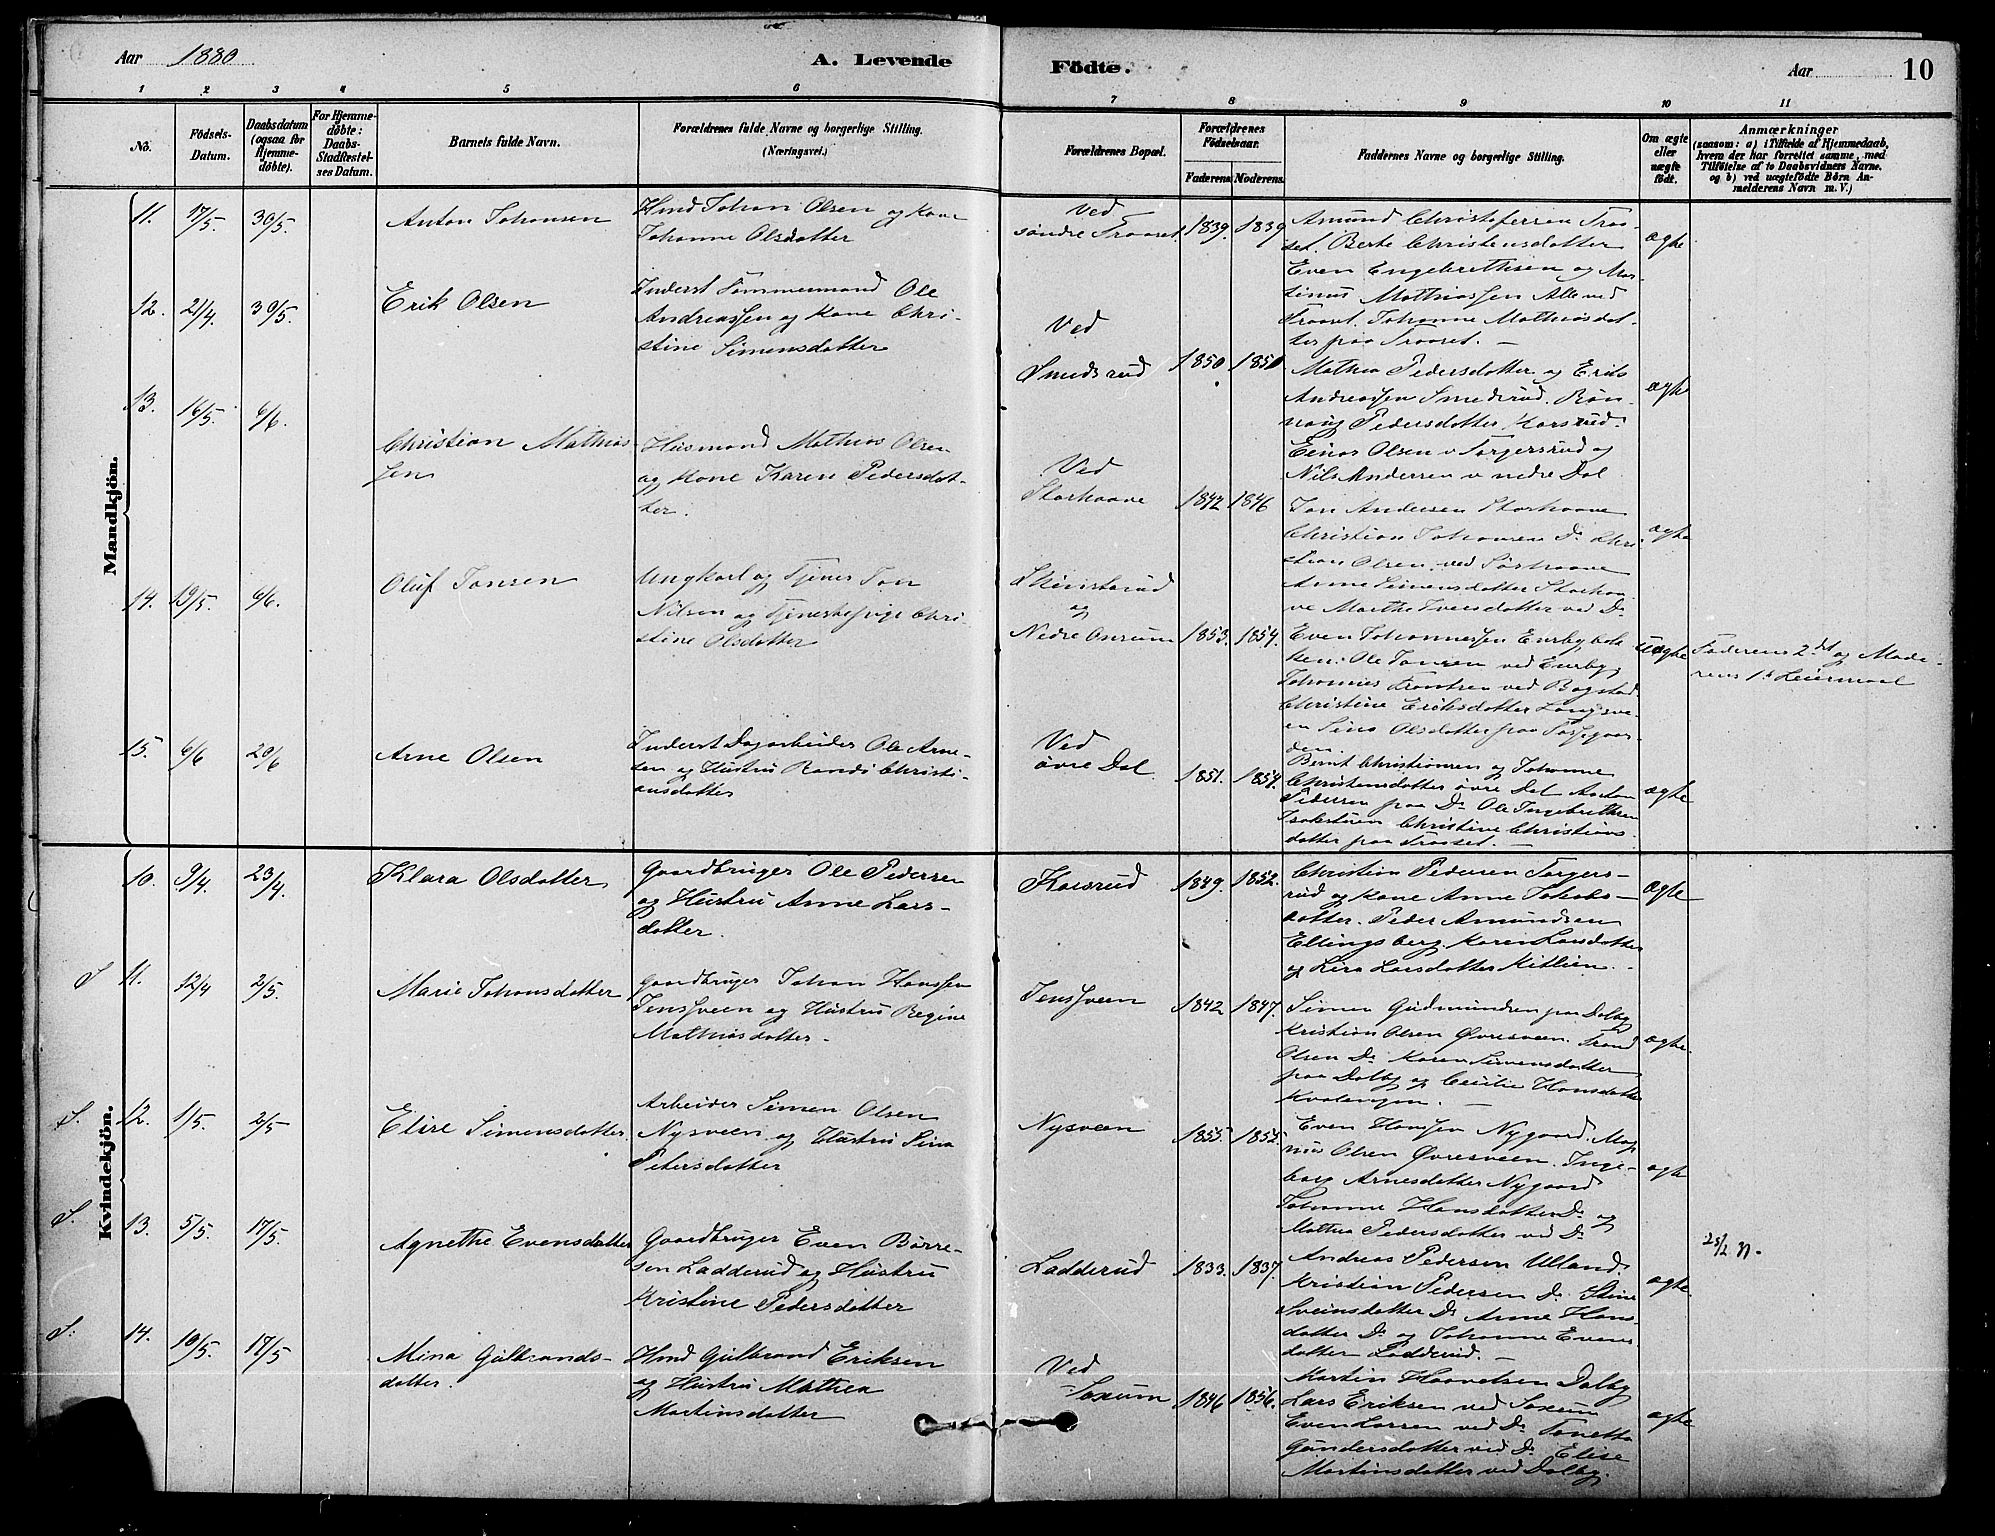 Aar 1880
A. Levende
Födte.
Aar
10
1 2 3 4 5 6 7 8 9 10 11
No.
Födsels-
Datum.
Daabsdatum
(ogsaa for
Hjemme-
döbte).
For Hjemme-
döbte:
Daabs-
Stadfæstel-
ses Datum.
Barnets fulde Navn.
Forældrenes fulde Navne og borgerlige Stilling.
(Næringsvei.)
Forældrenes Bopæl.
Forældrenes
Födselsaar.
Faderens. Moderens.
Faddernes Navne og borgerlige Stilling.
Om ægte
eller
uægte
födt.
Anmærkninger
(saasom: a) i Tilfælde af Hjemmedaab,
hvem der har forrettet samme, med
Tilföielse af to Daabsvidners Navne,
og b) ved uægtefödte Börn An-
melderens Navn m. V.)
Mandkjön.
11. 17/5. 30/5.
Anton Johansen
Hmd Johan Olsen og Kone
Johanne Olsdatter
Ved
søndre Traaset.
1839. 1839
Amund
set. Berte Christensdatter
Even Engebrethsen og Mar-
tinus Mathiassen Alle ved
Traaset. Johanne Mathiasdat-
ter paa Traaset. —
ægte
12. 21/4. 30/5.
Erik Olsen
Inderst Tømmermand Ole
Andreassen og Kone Chri-
stine Simensdatter
Ved
Smedsrud
1850 1850
Mathia Pedersdatter og Erik
Andreassen Smedsrud. Røn-
naug Pedersdatter Korsrud.
Einar Olsen v Torgersrud og
Nils Andersen v nedre Dal
ægte
13. 16/5. 6/6.
Christian Mathias-
sen
Husmand Mathias Olsen
og Kone Karen Pedersdat-
ter.
Ved
Storhaave
1842 1846
Jon Andersen Storhaave
Christian Johansen Do Chri-
stian Olsen ved Storhaave
Anne Simensdatter Storhaa-
ve Marthe Iversdatter ved Do
ægte
14. 19/5. 6/6.
Oluf Jonsen
Ungkarl og Tjener Jon
Nilsen og Tjenestepige Chri-
stine Olsdatter
Skinstarud
og
Nedre Onsum
1853. 1854.
Even Johannessen Enebybak-
ken. Ole Jonsen ved Eneby,
Johannes ved Bogstad
Christine Eriksdatter Langsve-
en Sina Olsdatter paa
den.
uægte
Faderens 2det og Mode-
rens 1ste Leiermaal
15. 6/6 20/6
Arne Olsen
Inderst Dagarbeider Ole Arne-
sen og Hustru Randi Christi-
ansdatter
Ved
øvre Dal.
1851. 1854.
Bernt Christiansen og Johanne
Christensdatter øvre Dal Anton
Pedersen paa Do Ole Ingebrethsen
Christine Christians-
datter paa Traaset. —
ægte
Kvindekjön.
10. 9/4. 23/4.
Klara Olsdatter
Gaardbruger Ole Pedersen
og Hustru Anne Lars-
datter.
Korsrud
1849. 1852.
Christian Pedersen Torgers-
rud og Kone Anne Jakobs-
datter. Peder Amundsen
Ellingsberg. Karen Larsdatter
og Lina Larsdatter Kitlien.
ægte
S 11. 12/4 2/5.
Marie Johansdatter
Gaardbruger Johan Hanssen
Jenssveen og Hustru Regine
Mathiasdatter.
Jenssveen
1842 1847.
Simen Gudmundsen paa Dalby
Kristian Olsen Øvresveen. Trond
Olsen Do Karen Simensdatter
paa Dalby og Cecilie Hansdatter
Kvalangen. —
ægte.
S. 12. 1/5. 2/5
Elise Simensdatter.
Arbeider Simen Olsen
Nysveen og Hustru Sina
Petersdatter
Nysveen
1855. 1855.
Even Hanssen Nygaard. Mag-
nus Olsen Øvresveen. Inge-
borg Arnesdatter Nygaard
Johanne Hansdatter Do og
Mathea Pedersdatter ved Do
ægte
S. 13. 5/5. 17/5.
Agnethe Evensdatter
Gaardbruger Even Børre-
sen Ladderud og Hustru
Kristine Pedersdatter
Ladderud
1833. 1837.
Andreas Pedersen Ulland.
Kristian Pedersen Do Stine
Sveinsdatter Do Anne Hans-
datter Do og Johanne Evens-
datter Ladderud. —
ægte.
25/2 N.
S. 14. 10/5. 17/5
Mina Gulbrands-
datter.
Hmd Gulbrand Eriksen
og Hustru Mathea
Martinsdatter
Ved
Saxum
1846 1856.
Martin Haavelsen Dalby
Lars Eriksen ved Saxum
Even Larsen ved Do Tonetta
Gundersdatter ved Do Elise
Martinsdatter ved Dalby.
ægte